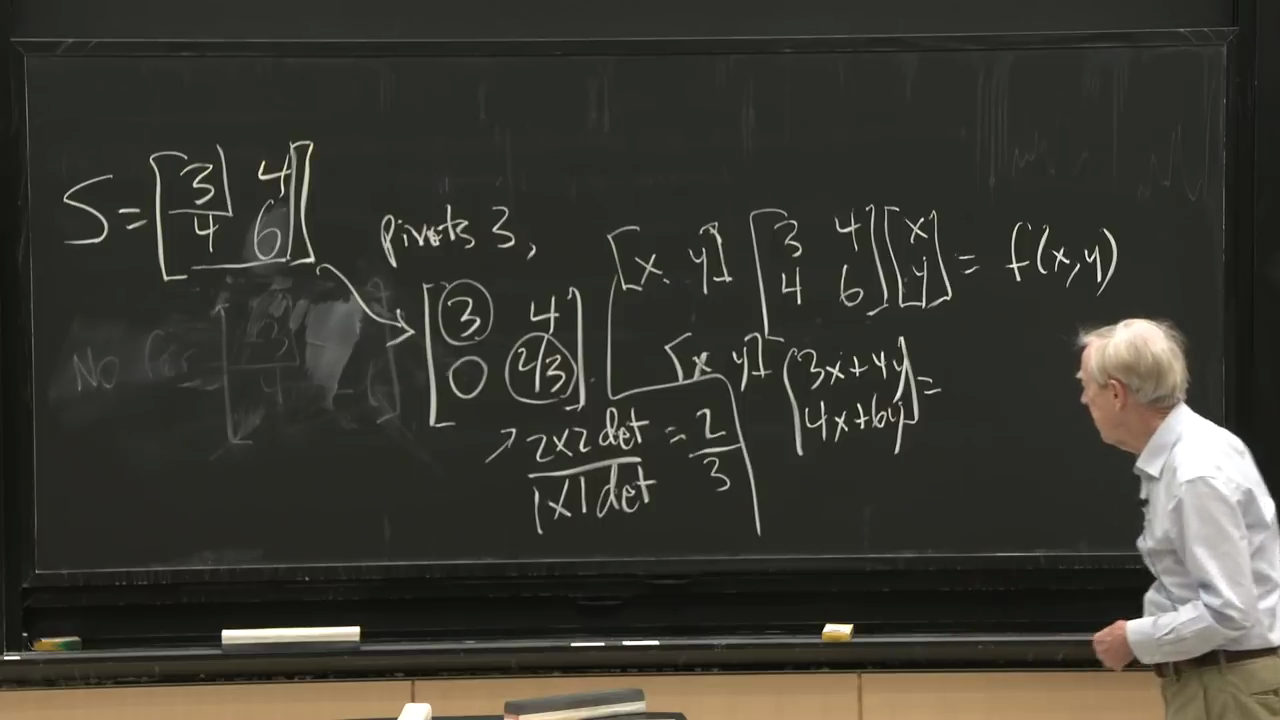 S = [3 4
4 6]
pivots 3,
[3 4
0 2/3]
2x2 det / 1x1 det = 2/3
[x y] [3 4
4 6] [x
y] = f(x,y)
[x y] [3x+4y
4x+6y] =
No for [3
4 6]